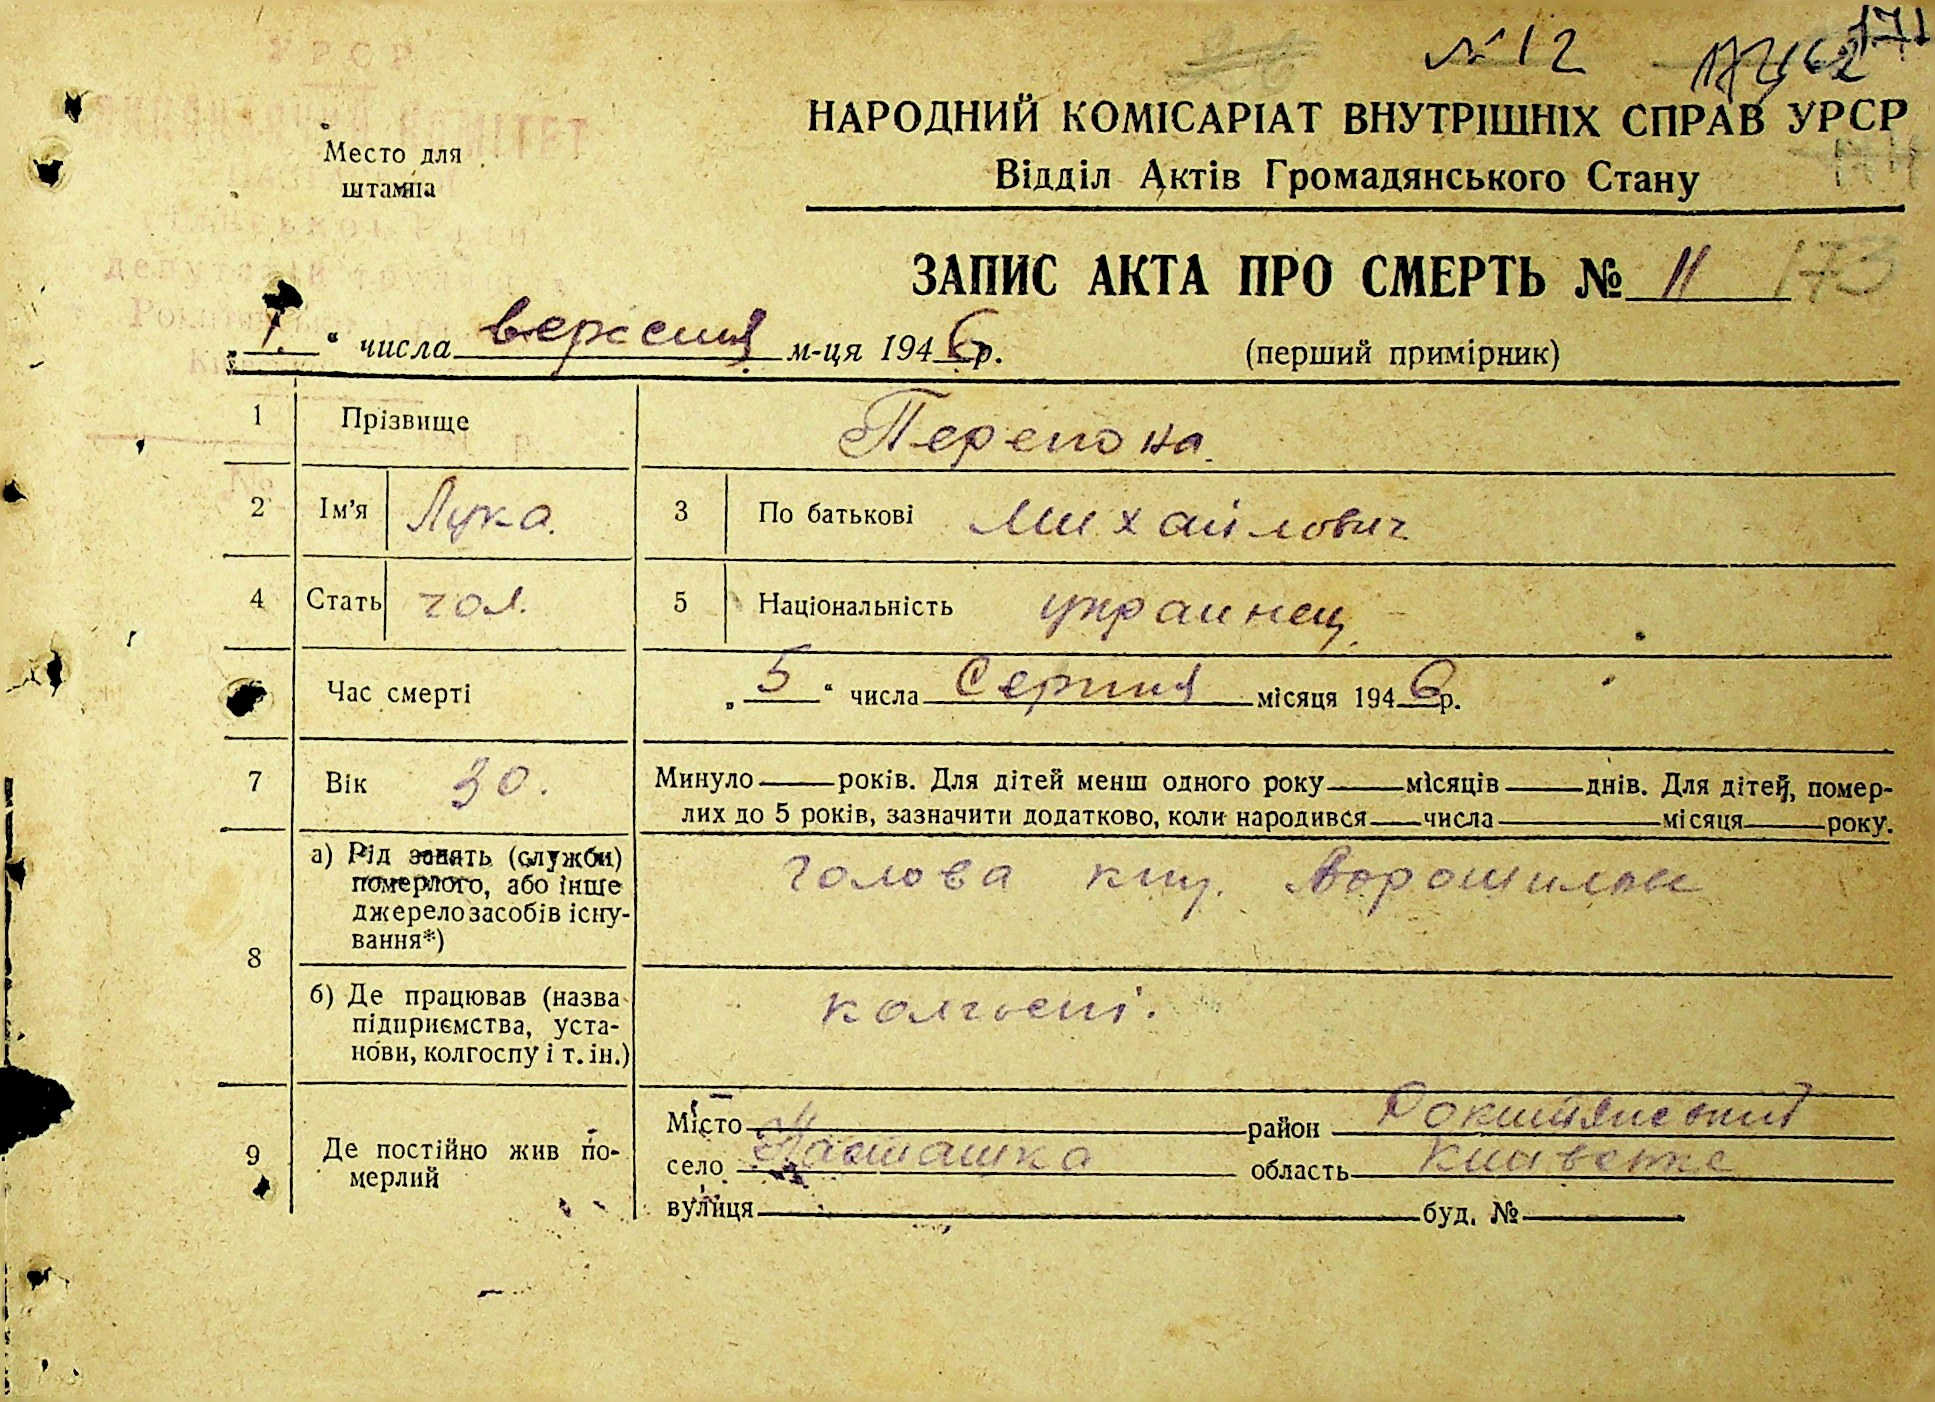 № 12
УРСР
НАРОДНИЙ КОМІСАРІАТ ВНУТРІШНІХ СПРАВ УРСР
Место для
штампа
Відділ Актів Громадянського Стану
174
ЗАПИС АКТА ПРО СМЕРТЬ № 11
173
„1.“ числа вересня м-ця 1946 р.
(перший примірник)
1 Прізвище
2 Ім'я Лука. 3 По батькові Михайлович
4 Стать чол. 5 Національність украинец.
Час смерті „5“ числа Серпня місяця 1946 р.
7 Вік 30. Минуло років. Для дітей менш одного року місяців днів. Для дітей, помер-
лих до 5 років, зазначити додатково, коли народився числа місяця року.
8 а) Рід занять (служби) голова
померлого, або інше
джерело засобів існу-
вання*)
б) Де працював (назва колгоспі.
підприємства, уста-
нови, колгоспу і т. ін.)
9 Де постійно жив по-
мерлий
Місто район
село Насташка область Киевске
вулиця буд. №